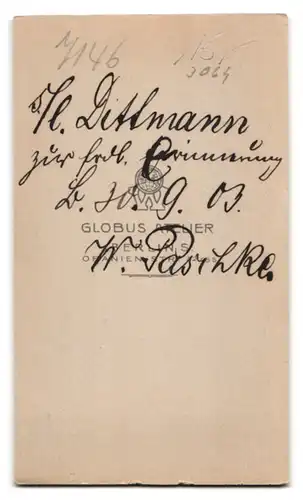 7146
15
3064
Fl. Dittmann
zur frdl. Erinnerung
B. 30. 9. 03.
GLOBUS ATELIER
BERLIN S
W. Paschke.